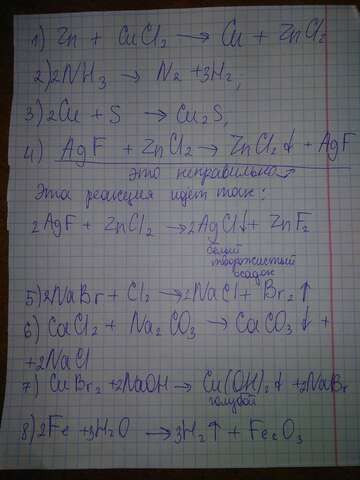 1) Zn + CuCl₂ → Cu + ZnCl₂
2) 2NH₃ → N₂ + 3H₂,
3) 2Cu + S → Cu₂S,
4) AgF + ZnCl₂ → ZnCl₂↓ + AgF
это неправильно
Эта реакция идет так:
2AgF + ZnCl₂ → 2AgCl↓ + ZnF₂
белый
творожистый
осадок
5) 2NaBr + Cl₂ → 2NaCl + Br₂↑
6) CaCl₂ + Na₂CO₃ → CaCO₃↓ +
+ 2NaCl
7) CuBr₂ + 2NaOH → Cu(OH)₂↓ + 2NaBr
голубой
8) 2Fe + 3H₂O → 3H₂↑ + Fe₂O₃